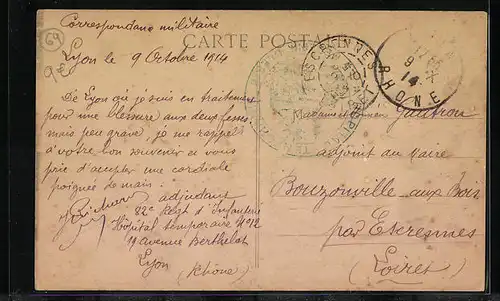 69
Correspondance militaire
CARTE POSTALE
Lyon le 9 Octobre 1914
De Lyon où je suis en traitement
pour une blessure aux deux fesses,
mais peu grave, je me rappelle
à votre bon souvenir et vous
prie d'accepter une cordiale
poignée de main.
adjudant
82e Regt d'Infanterie
Hôpital temporaire N°
Avenue Berthelot
Lyon (Rhône)
RHONE
9
14
Gautron
adjoint au Maire
Bouzonville aux Bois
par Escrennes
(Loiret)